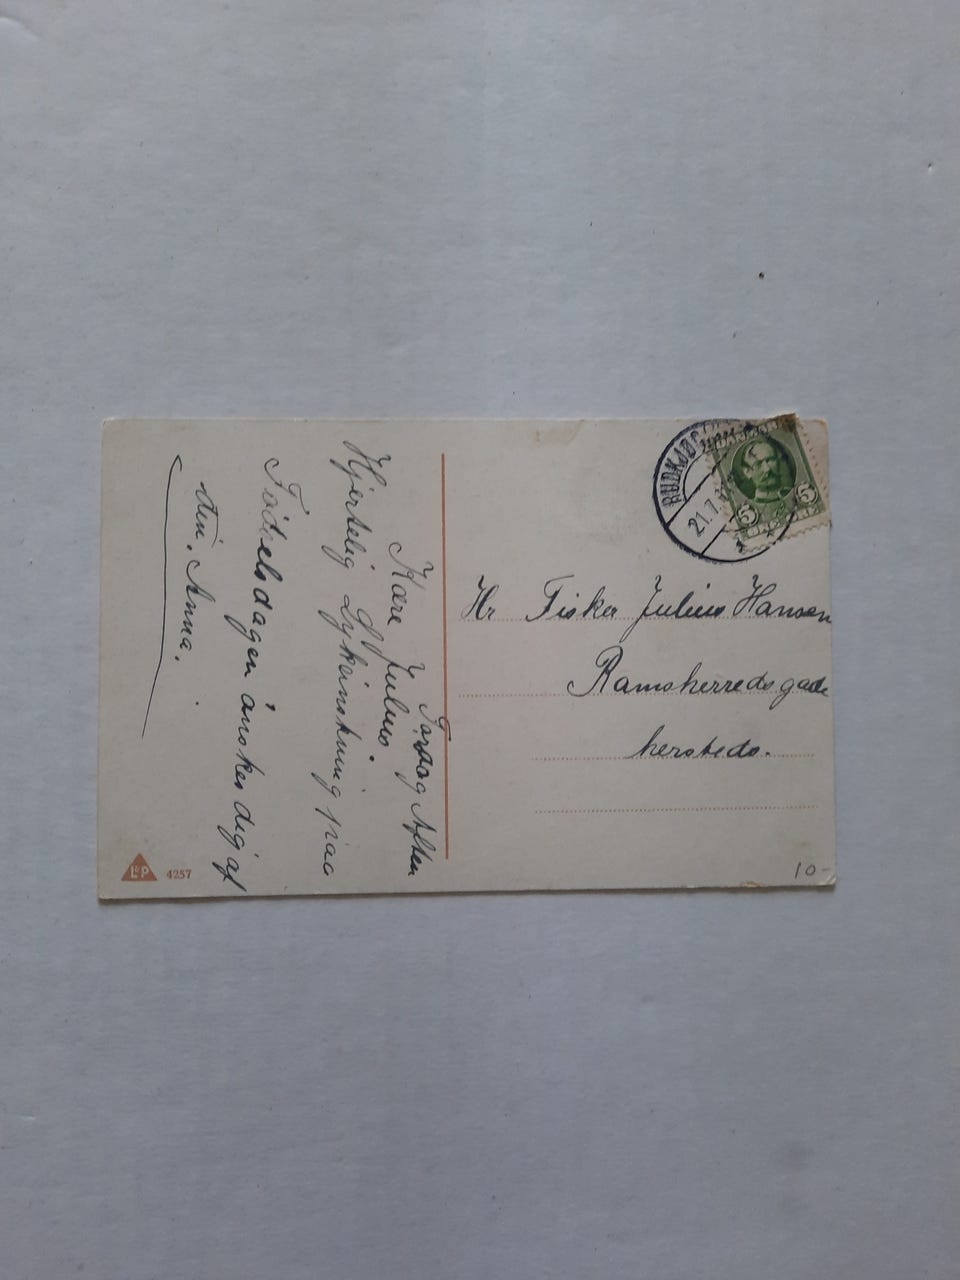 Torsdag Aften
Kære Julius.
Hjertelig Lykønskning paa
Fødselsdagen ønskes dig af
din. Anna.
RUDKJØB
21.7
DANMARK
5 5
Hr Fisker Julius Hansen
Ramsherredsgade
hersteds.
L&P 4257
10-